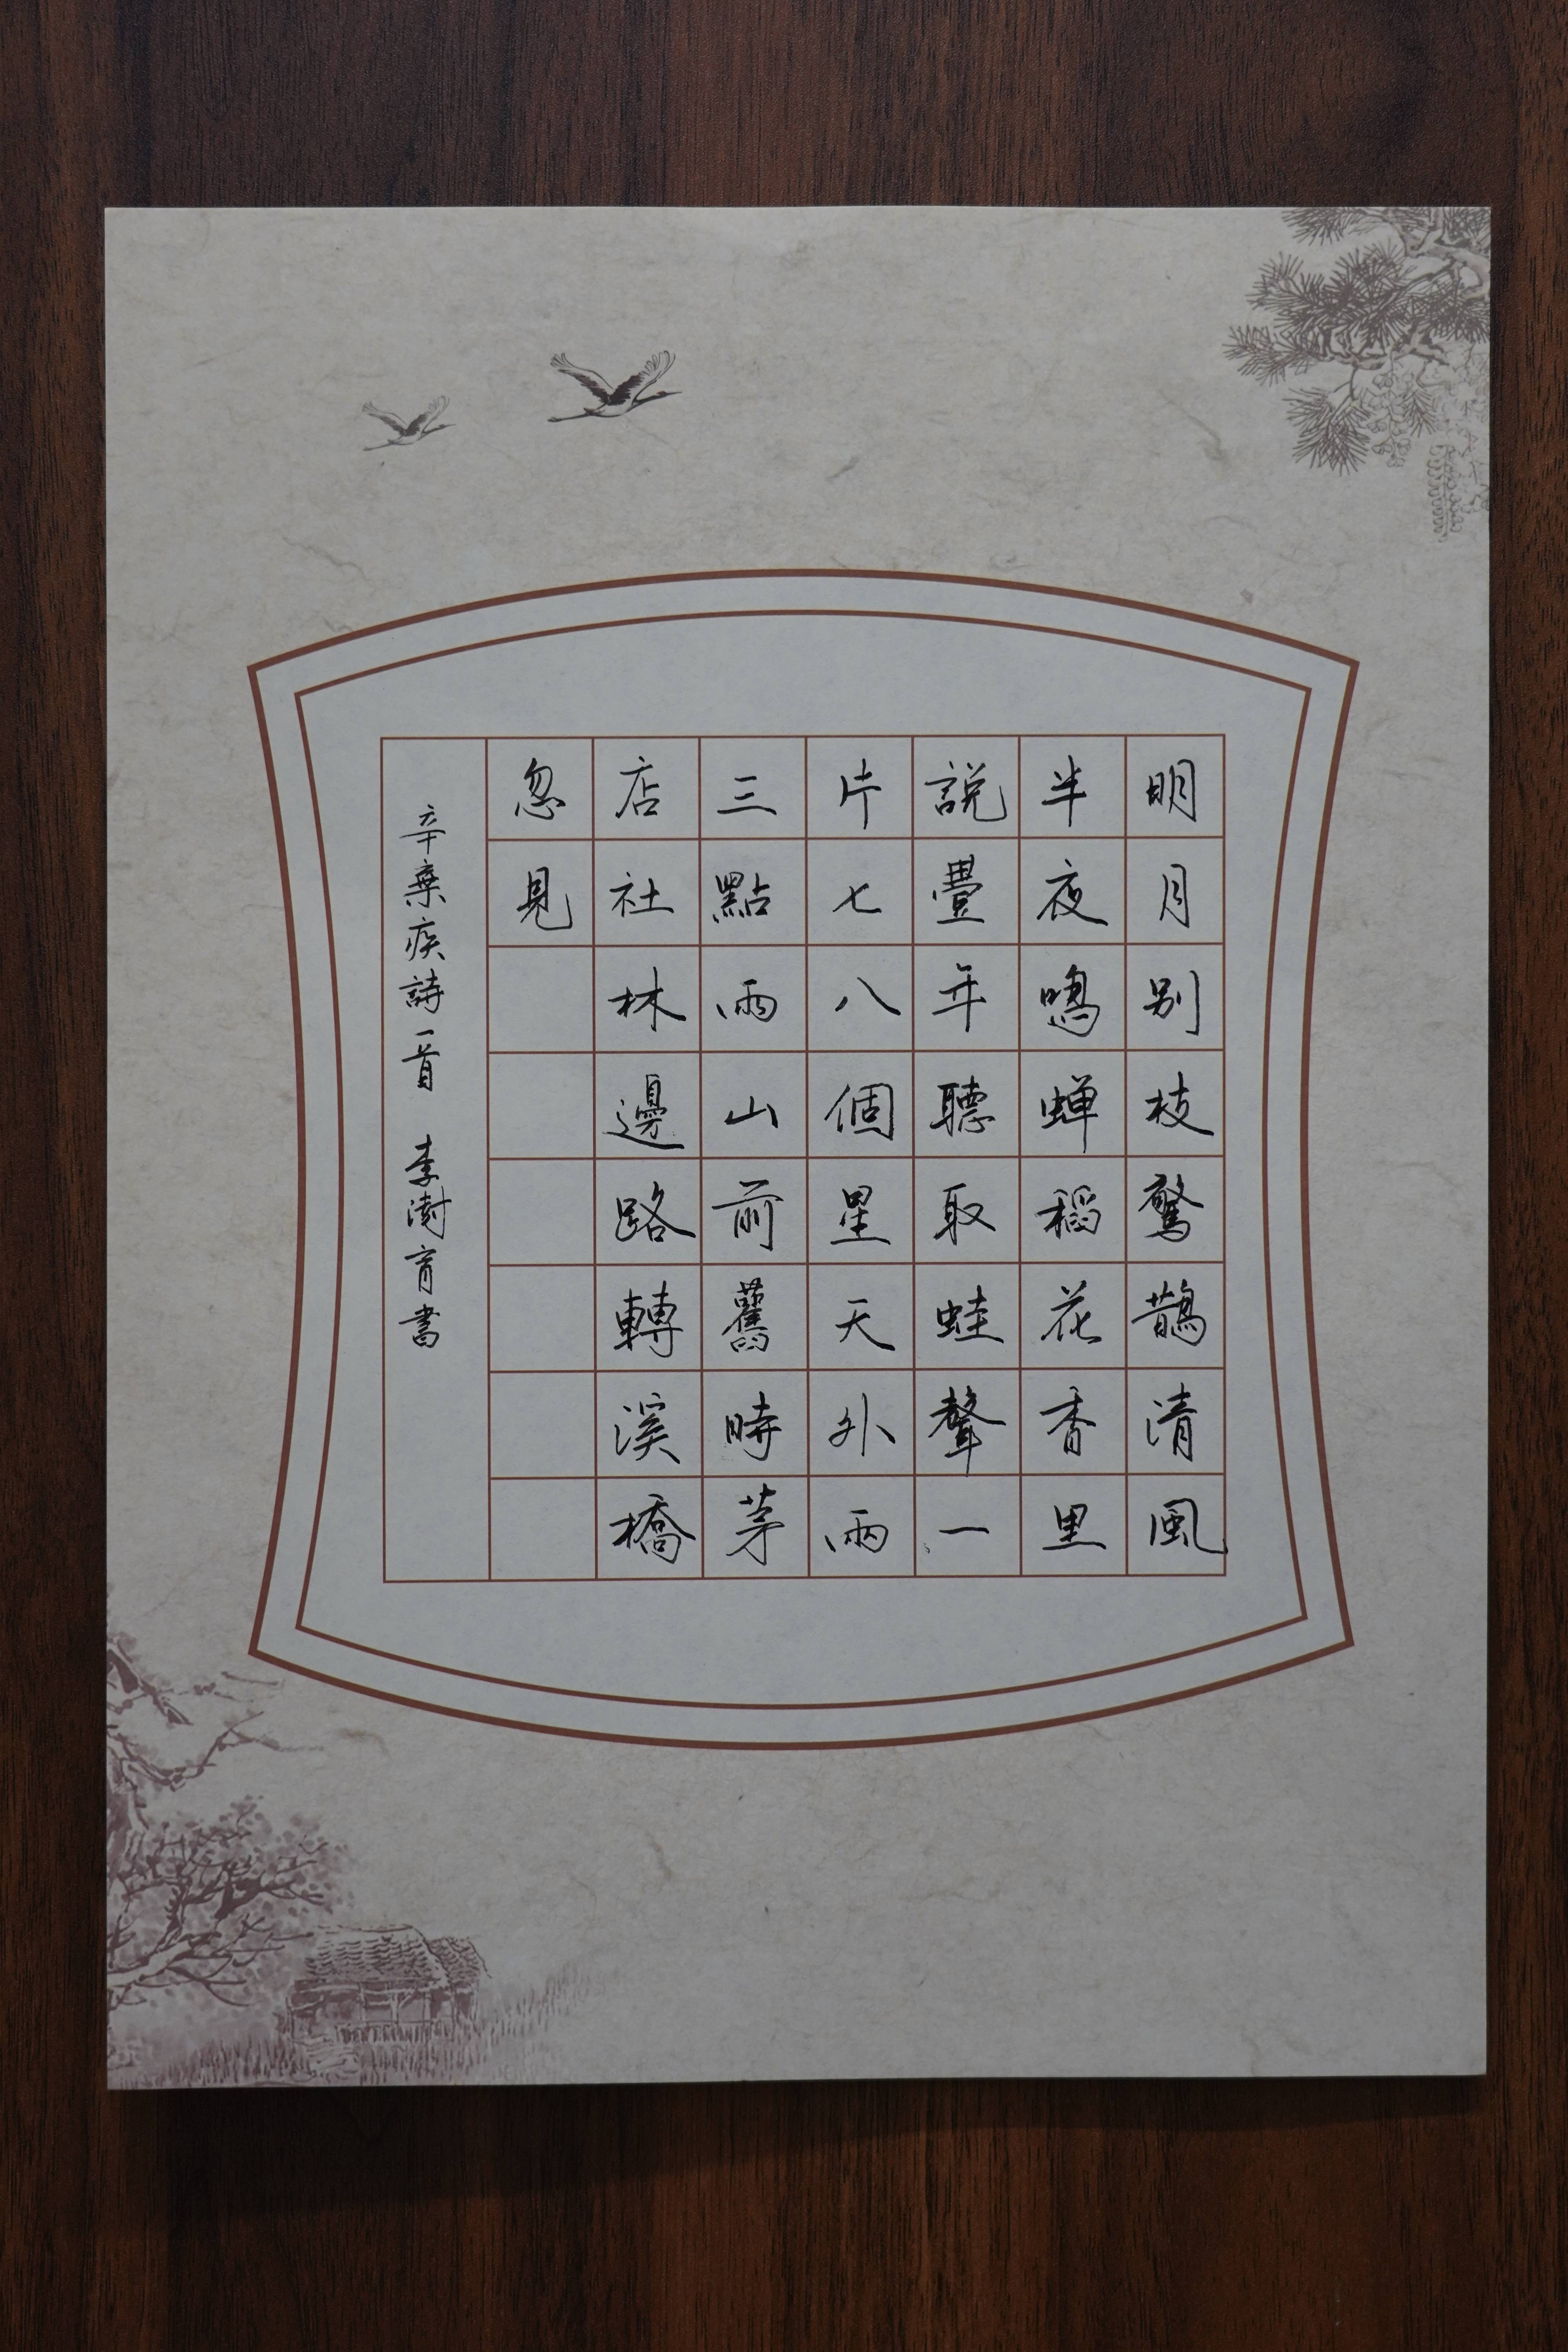 明月别枝驚鵲清風
半夜鳴蝉稻花香里
説豐年聽取蛙聲一
片七八個星天外兩
三點雨山前舊時茅
店社林邊路轉溪橋
忽見
辛棄疾詩一首 李澍育書